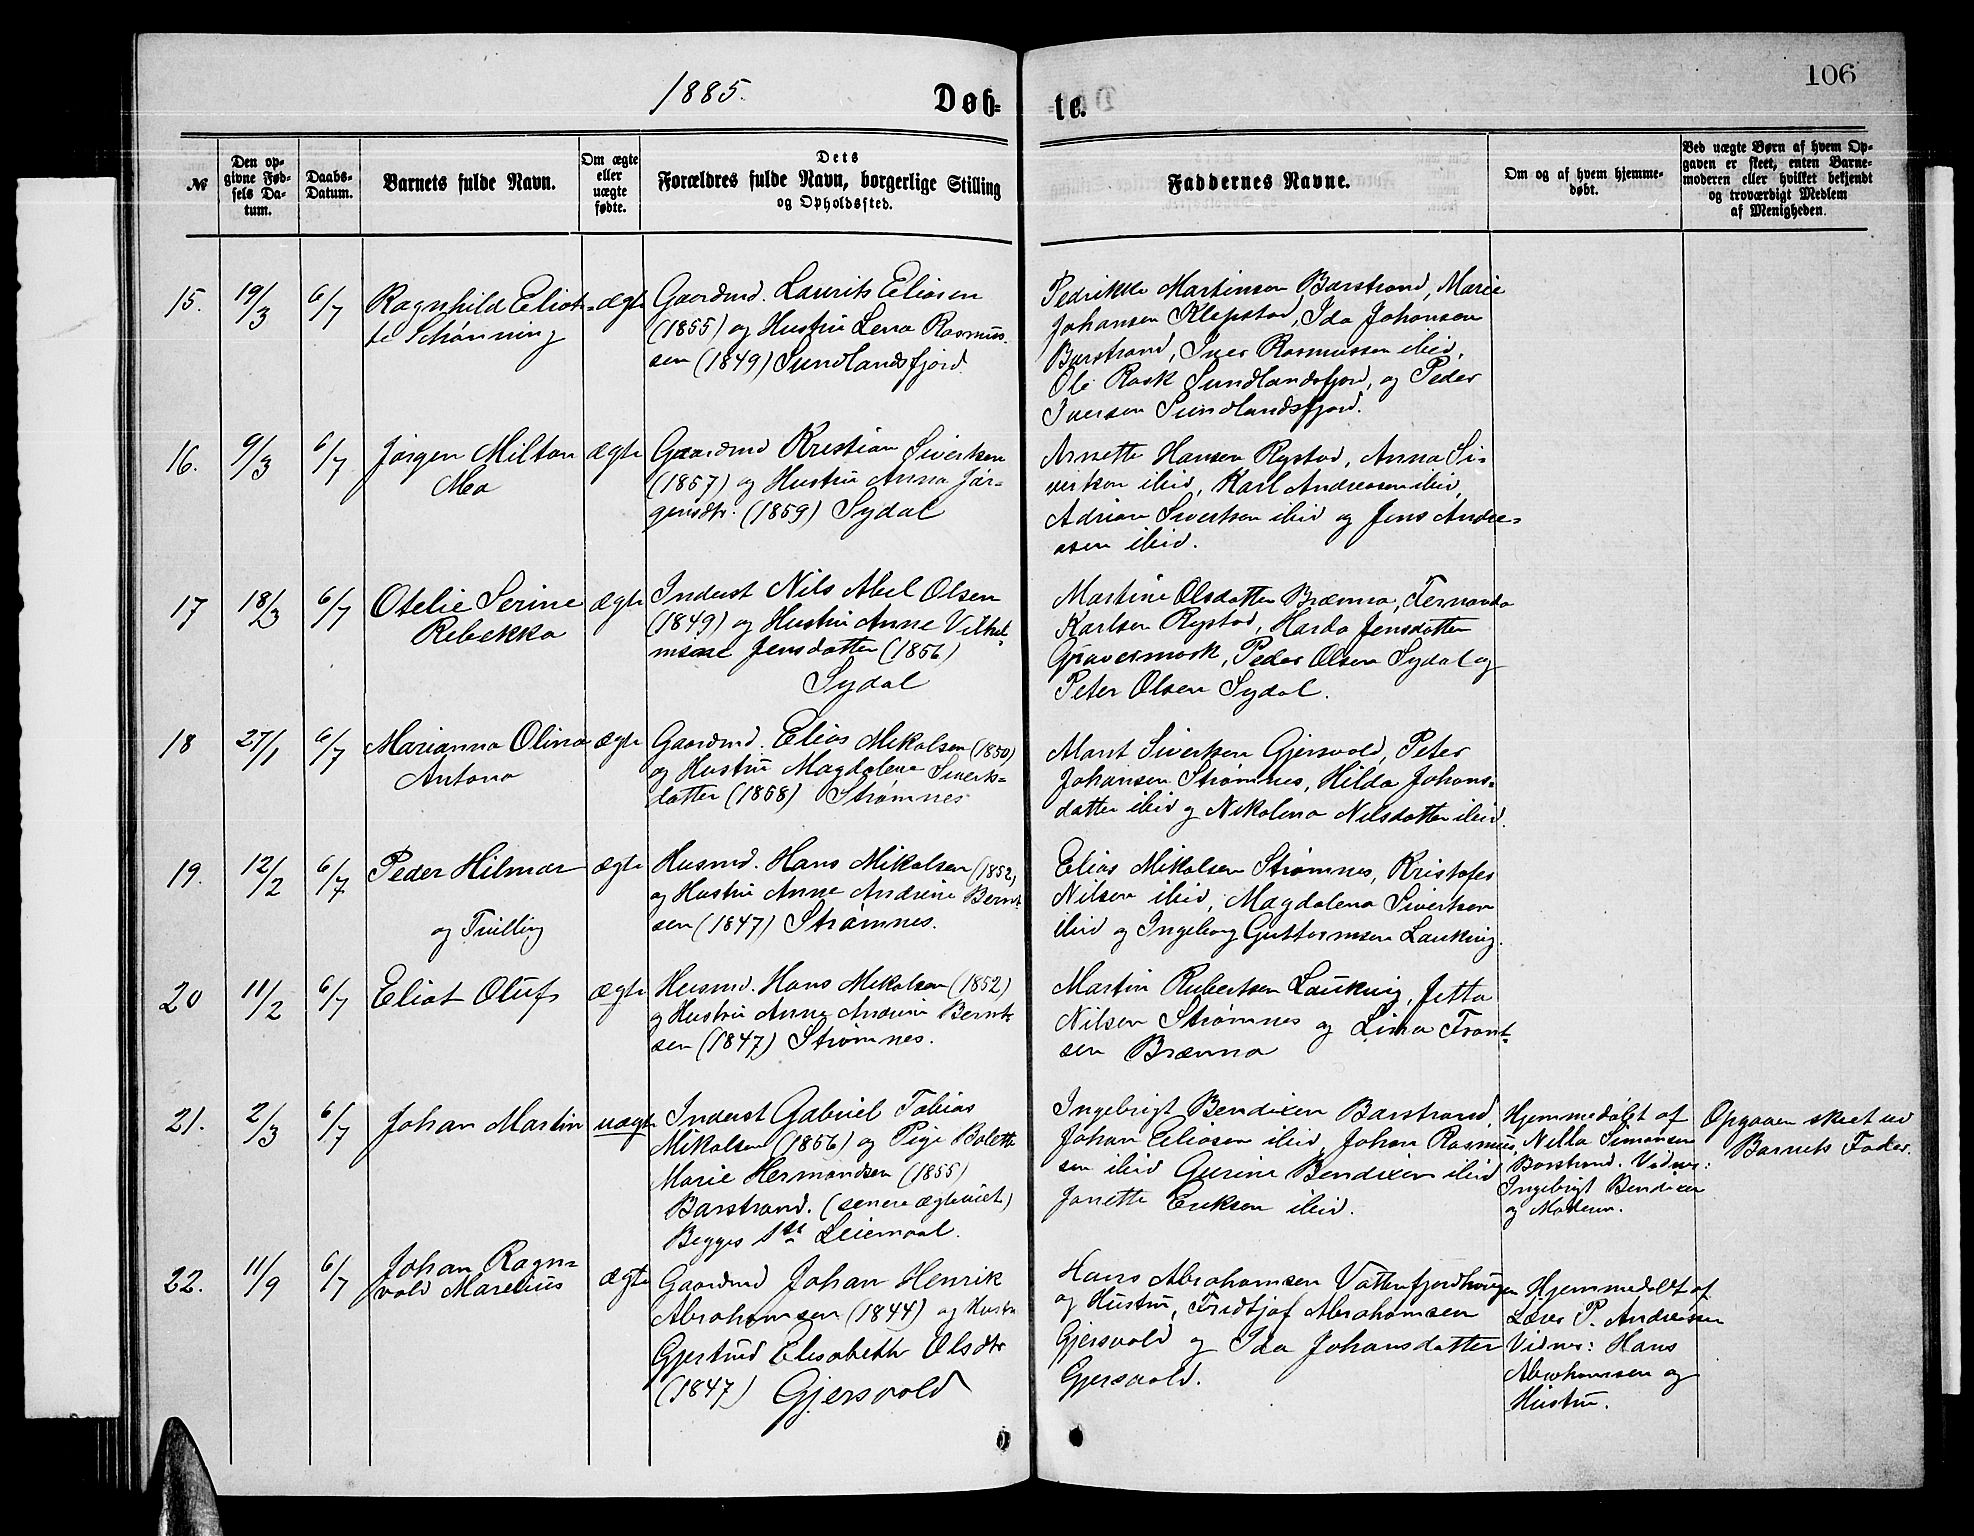 1885.
Døb-
te.
106
№
Den op-
givne Fød-
sels Da-
tum.
Daabs-
Datum.
Barnets fulde Navn.
Om ægte
eller
uægte
fødte.
Dets
Forældres fulde Navn, borgerlige Stilling
og Opholdssted.
Faddernes Navne.
Om og af hvem hjemme-
døbt.
Ved uægte Børn af hvem Op-
gaven er skeet, enten Barne-
moderen eller hvilket bekjendt
og troværdigt Medlem
af Menigheden.
15.
19/3
6/7
Ragnhild Eliot-
te Schønning
ægte
Gaardmd. Laurits Eliasen
(1855) og Hustru Lena Rasmus-
sen (1849) Sundlandsfjord.
Pedrikke Martinsen Barstrand, Marie
Johansen Klepstad, Ida Johansen
Barstrand, Iver Rasmussen ibid,
Ole Rask Sundlandsfjord, og Peder
Iversen Sundlandsfjord.
16.
9/3
6/7
Jørgen Milton
Mea
ægte
Gaardmd Kristian Sivertsen
(1857) og Hustru Anna Jør-
gensdtr. (1859) Sydal
Arnette Hansen Rystad, Anna Si-
vertsen ibid, Karl Andreasen ibid,
Adrian Sivertsen ibid og Jens Andre-
asen ibid.
17
18/3
6/7
Otelie Serine
Rebekka
ægte
Inderst Nils Abel Olsen
(1849) og Hustru Anne Vilhel-
msene Jensdatter (1856)
Sydal
Martine Olsdatter Brænna, Fernanda
Karlsen Rystad, Harda Jensdatter
Gravermark, Peder Olsen Sydal og
Peter Olsen Sydal.
18
27/1
6/7
Marianna Olina
Antona
ægte
Gaardmd. Elias Mikalsen (1850)
og Hustru Magdalena Siverts-
datter (1858) Strømnes
Marit Sivertsen Gjersvold, Peter
Johansen Strømnes, Hilda Johans-
datter ibid og Nikolena Nilsdatter ibid.
19.
12/2
6/7
Peder Hilmar
og Tvilling
ægte
Husmd. Hans Mikalsen (1852)
og Hustru Anne Andrine Bernt-
sen (1847) Strømnes.
Elias Mikalsen Strømnes, Kristofer
Nilsen ibid, Magdalena Sivertsen
ibid og Ingeborg Guttormsen Laukvig.
20
11/2
6/7
Eliot Oluf
ægte
Husmd. Hans Mikalsen (1852)
og Hustru Anne Andrine Bernt-
sen (1847) Strømnes.
Martin Rubertsen Laukvig, Jetta
Nilsen Strømnes og Lina Frant-
sen Brænna
21.
2/3
6/7
Johan Martin
uægte
Inderst Gabriel Tobias
Mikalsen (1856) og Pige Bolette
Marie Hermandsen (1855)
Barstrand. (senere ægteviet)
Begges 1ste Leiemaal.
Ingebrigt Bendixen Barstrand,
Johan Eliasen ibid, Johan Rasmus-
sen ibid Gurine Bendixen ibid
Janette Eriksen ibid.
Hjemmedøbt af
Nella Simonsen
Barstrand. Vidner:
Ingebrigt Bendixen
og Moderen.
Opgaven skeet ved
Barnets Fader.
22.
11/9
6/7
Johan Ragn-
vald Marelius
ægte
Gaardmd Johan Henrik
Abrahamsen (1844) og Hustru
Gjertrud Elisabeth Olsdtr
(1847) Gjersvold
Hans Abrahamsen Vatterfjordhaugen
og Hustru, Fridtjof Abrahamsen
Gjersvold og Ida Johansdatter
Gjersvold.
Hjemmedøbt af
Lærer P. Andreassen
Vidner: Hans
Abrahamsen og
Hustru.